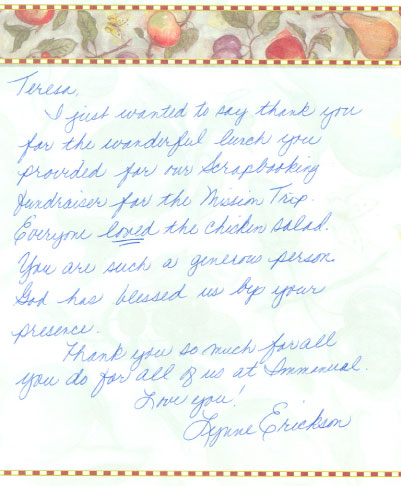 Teresa,
I just wanted to say thank you
for the wonderful lunch you
provided for our Scrapbooking
fundraiser for the Mission Trip.
Everyone loved the chicken salad.
You are such a generous person.
God has blessed us by your
presence.
Thank you so much for all
you do for all of us at Immanual.
Love you!
Lynne Erickson